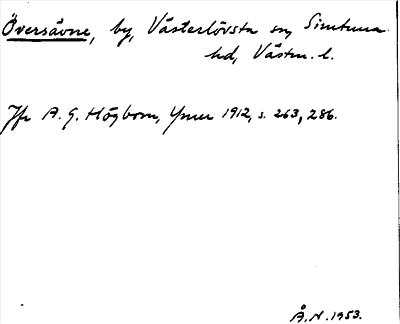 Översävne, by, Västerlövsta sn, Simtuna
hd, Västm. l.
Jfr A. G. Högbom, Ymer 1912, s. 263, 286.
Å.N. 1953.